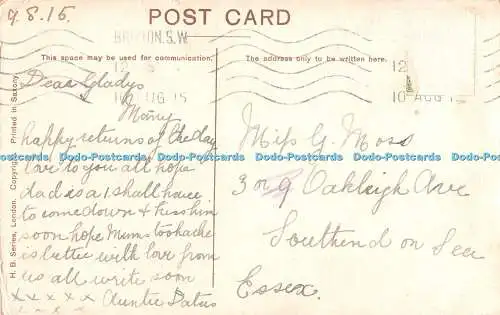 9.8.15.
POST CARD
BRIXTON.S.W
12
10 AUG 15
12
10 AUG 15
This space may be used for communication.
The address only to be written here.
H. B. Series, London. Copyright. Printed in Saxony.
Dear Gladys
Many
happy returns of the day
love to you all hope
dad is a 1. shall have
to come down & kiss him
soon hope Mums toothache
is better with love from
us all write soon
x x x x x Auntie
Miss G. Moss
3 or 9 Oakleigh Ave
Southend on Sea
Essex.
Dodo-Postcards Dodo-Postcards Dodo-Postcards Dodo-Postcards